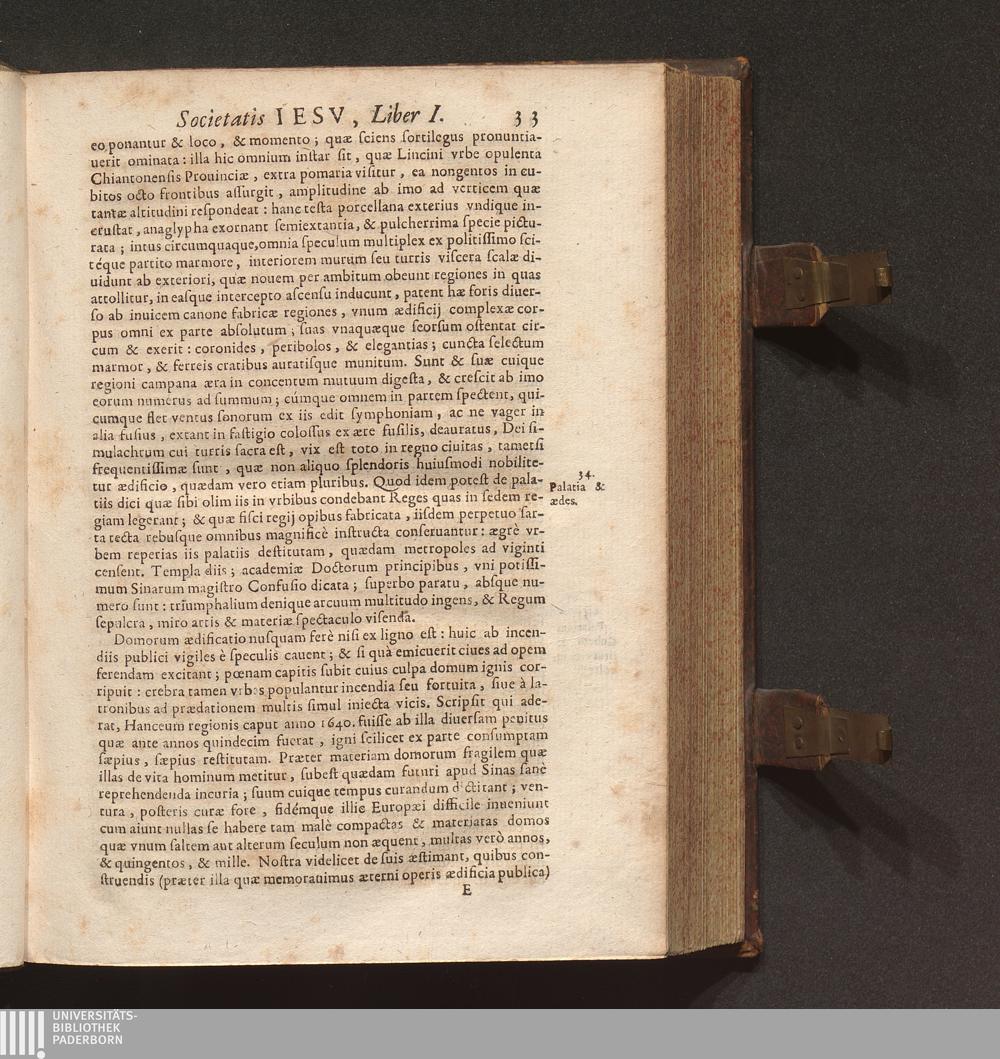 Societatis IESV, Liber I. 33
eo ponantur & loco, & momento; quæ sciens sortilegus pronuntia-
uerit ominata: illa hic omnium instar sit, quæ Lincini vrbe opulenta
Chiantonensis Prouinciæ, extra pomaria visitur, ea nongentos in cu-
bitos octo frontibus assurgit, amplitudine ab imo ad verticem quæ
tantæ altitudini respondeat: hanc testa porcellana exterius vndique in-
crustat, anaglypha exornant semiextantia, & pulcherrima specie pictu-
rata; intus circumquaque, omnia speculum multiplex ex politissimo sci-
téque partito marmore, interiorem murum seu turris viscera scalæ di-
uidunt ab exteriori, quæ nouem per ambitum obeunt regiones in quas
attollitur, in easque intercepto ascensu inducunt, patent hæ foris diuer-
so ab inuicem canone fabricæ regiones, vnum ædificij complexæ cor-
pus omni ex parte absolutum; suas vnaquæque seorsum ostentat cir-
cum & exerit: coronides, peribolos, & elegantias; cuncta selectum
marmor, & ferreis cratibus auratisque munitum. Sunt & suæ cuique
regioni campana æra in concentum mutuum digesta, & crescit ab imo
eorum numerus ad summum; cúmque omnem in partem spectent, qui-
cumque flet ventus sonorum ex iis edit symphoniam, ac ne vager in
alia fusius, extant in fastigio colossus ex ære fusilis, deauratus, Dei si-
mulachrum cui turris sacra est, vix est toto in regno ciuitas, tametsi
frequentissimæ sunt, quæ non aliquo splendoris huiusmodi nobilite-
tur ædificio, quædam vero etiam pluribus. Quod idem potest de pala-
tiis dici quæ sibi olim iis in vrbibus condebant Reges quas in sedem re-
giam legerant; & quæ fisci regij opibus fabricata, iisdem perpetuo sar-
ta tecta rebusque omnibus magnificè instructa conseruantur: ægrè vr-
bem reperias iis palatiis destitutam, quædam metropoles ad viginti
censent. Templa diis; academiæ Doctorum principibus, vni potissi-
mum Sinarum magistro Confusio dicata; superbo paratu, absque nu-
mero sunt: triumphalium denique arcuum multitudo ingens, & Regum
sepulcra, miro artis & materiæ spectaculo visenda.
34.
Palatia &
ædes.
Domorum ædificatio nusquam ferè nisi ex ligno est: huic ab incen-
diis publici vigiles è speculis cauent; & si quà emicuerit ciues ad opem
ferendam excitant; pœnam capitis subit cuius culpa domum ignis cor-
ripuit: crebra tamen vrbes populantur incendia seu fortuita, siue à la-
tronibus ad prædationem multis simul iniecta vicis. Scripsit qui ade-
rat, Hanceum regionis caput anno 1640. fuisse ab illa diuersam penitus
quæ ante annos quindecim fuerat, igni scilicet ex parte consumptam
sæpius, sæpius restitutam. Præter materiam domorum fragilem quæ
illas de vita hominum metitur, subest quædam futuri apud Sinas sanè
reprehendenda incuria; suum cuique tempus curandum dictitant; ven-
tura, posteris curæ fore, sidémque illic Europæi difficile inueniunt
cum aiunt nullas se habere tam malè compactas & materiatas domos
quæ vnum saltem aut alterum seculum non æquent, multas verò annos,
& quingentos, & mille. Nostra videlicet de suis æstimant, quibus con-
struendis (præter illa quæ memorauimus æterni operis ædificia publica)
E
UNIVERSITÄTS-
BIBLIOTHEK
PADERBORN